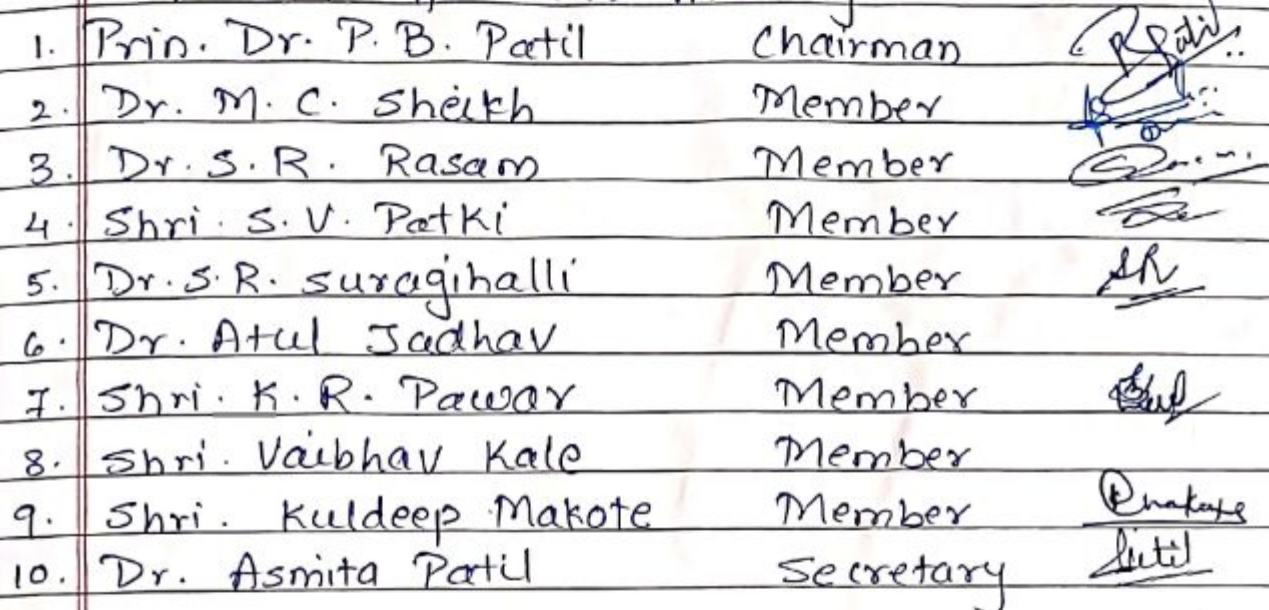 1. Prin. Dr. P. B. Patil Chairman
2. Dr. M. C. Sheikh Member
3. Dr. S. R. Rasam Member
4. Shri. S. V. Patki Member
5. Dr. S. R. Suragihalli Member SR
6. Dr. Atul Jadhav Member
7. Shri. K. R. Pawar Member
8. Shri. Vaibhav Kale Member
9. Shri. Kuldeep Makote Member
10. Dr. Asmita Patil Secretary